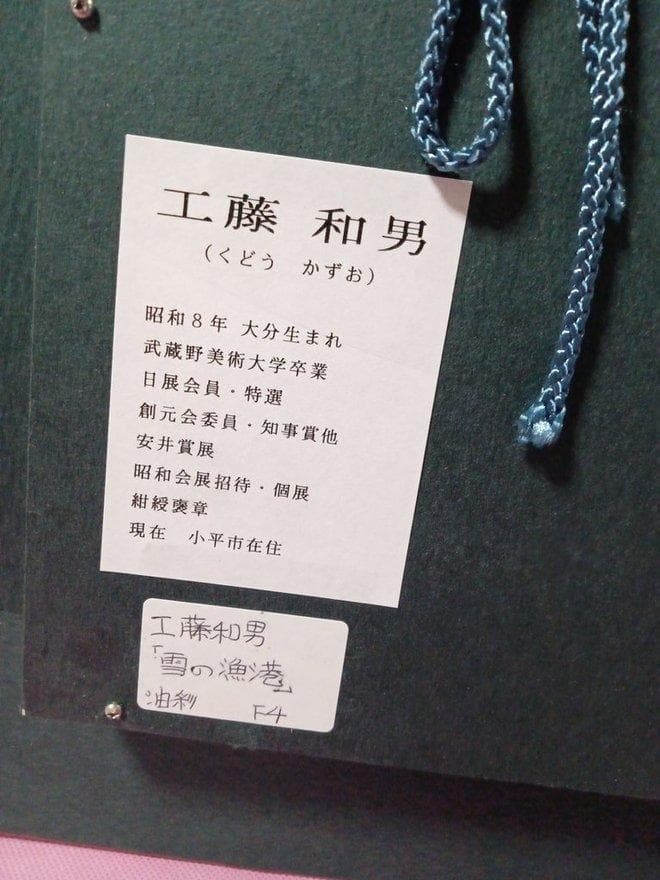 工藤 和男
（くどう　かずお）
昭和８年 大分生まれ
武蔵野美術大学卒業
日展会員・特選
創元会委員・知事賞他
安井賞展
昭和会展招待・個展
紺綬褒章
現在　小平市在住
工藤和男
「雪の漁港」
油彩　F4